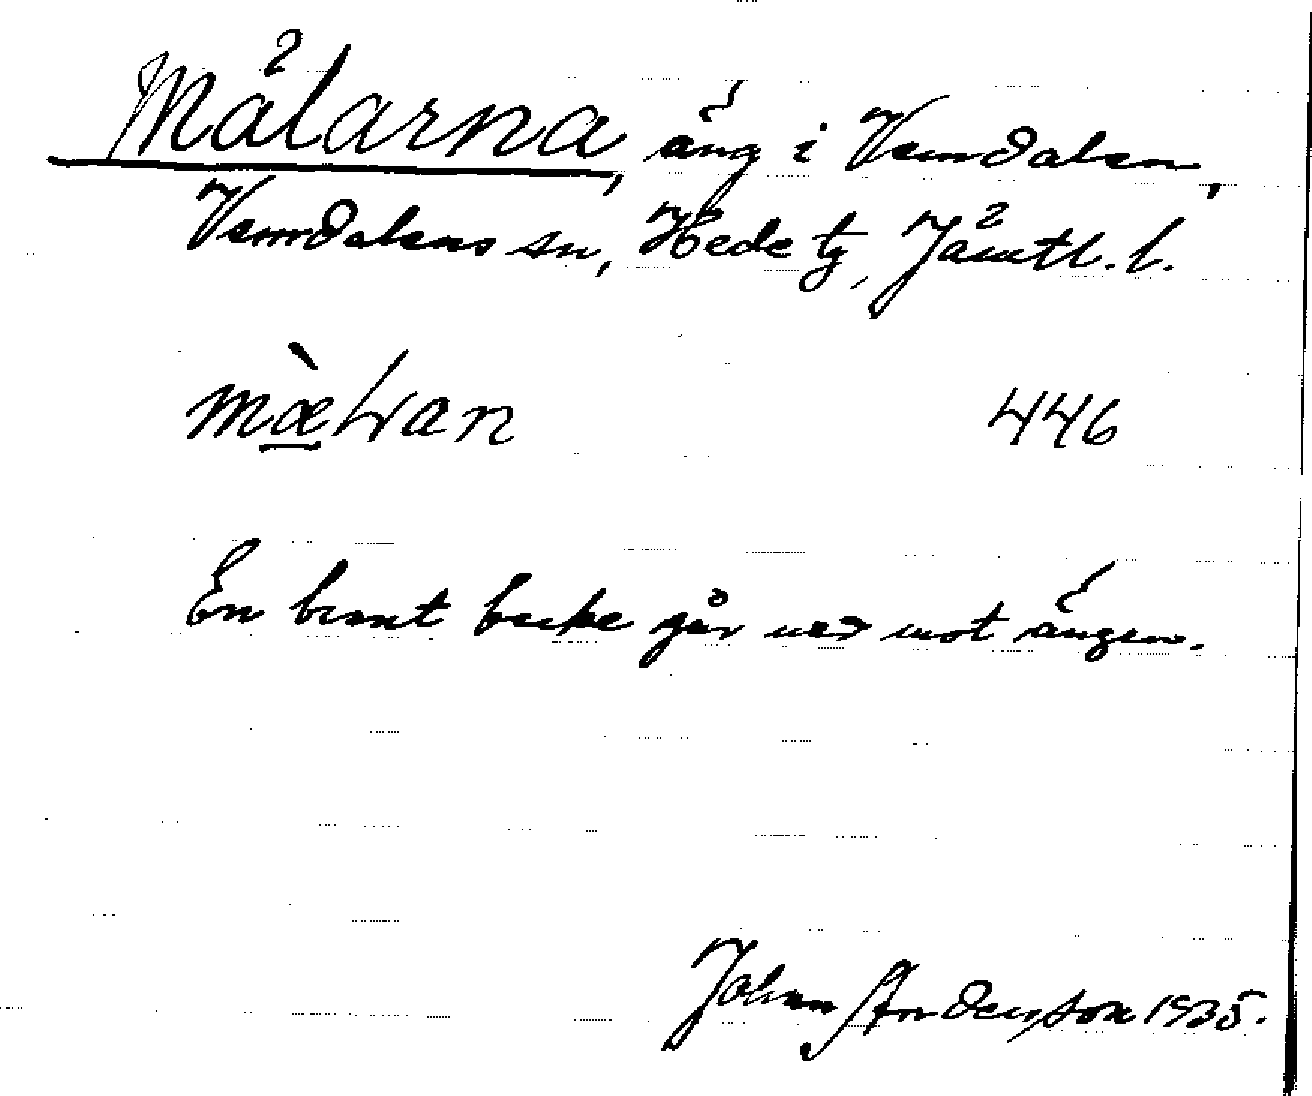 Mälarna, äng i Vemdalen,
Vemdalens sn, Hede tg, Jämtl. l.
mæ̀lran 446
En brant backe går ned mot ängen.
Johan Anderson 1935.